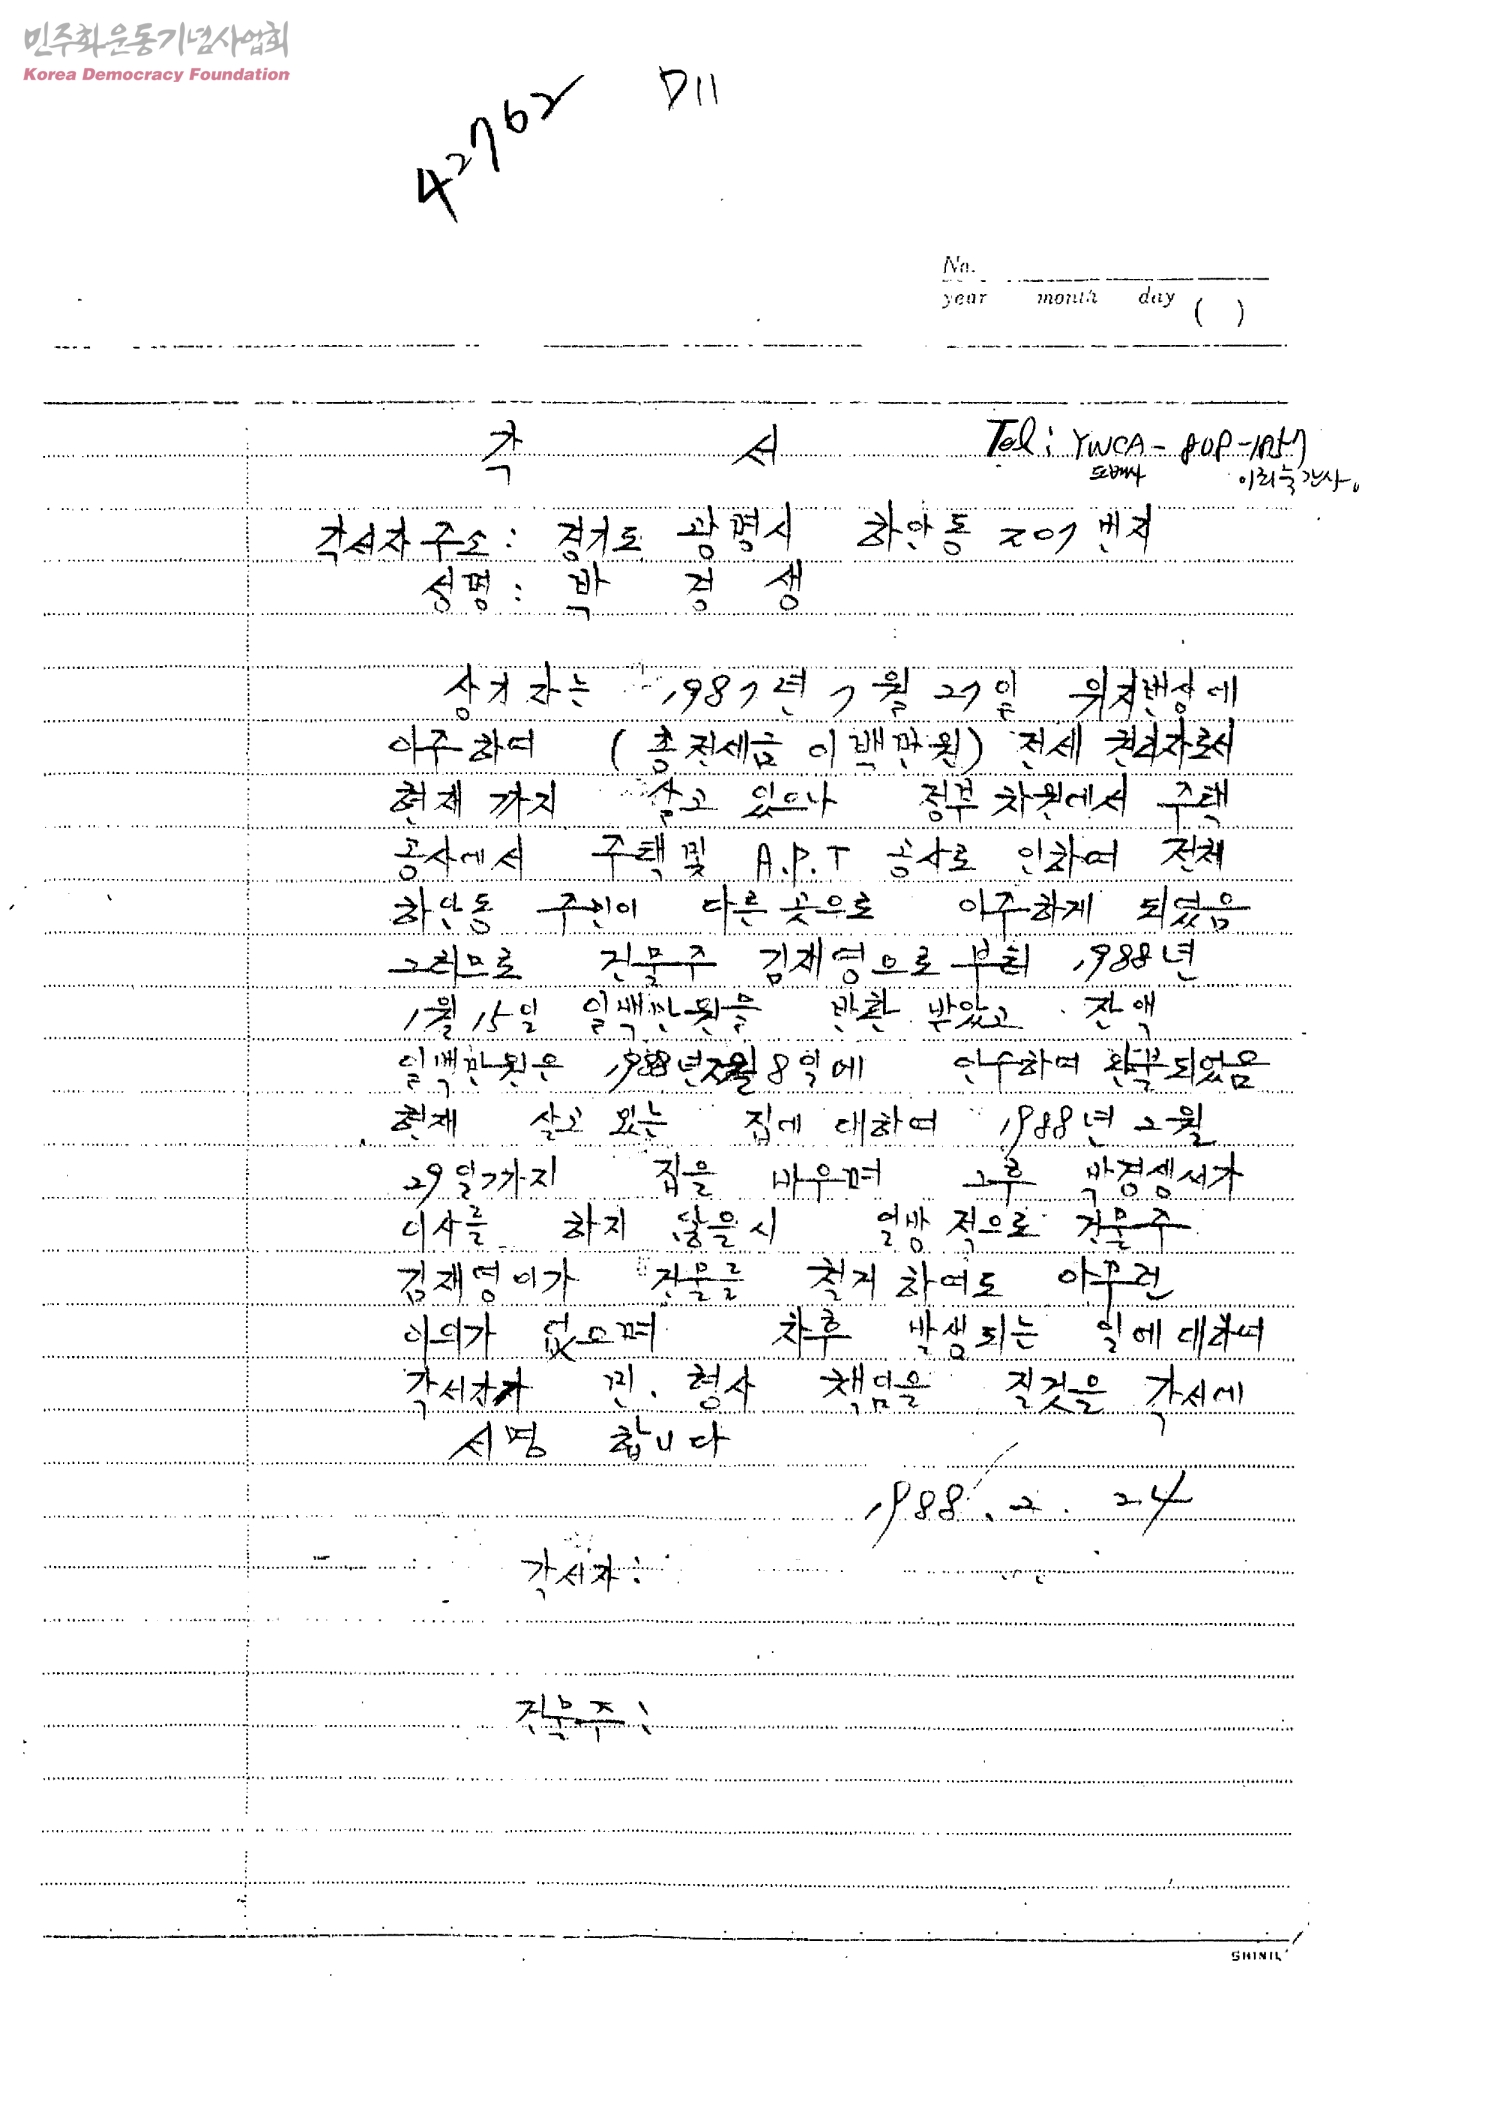 민주화운동기념사업회
Korea Democracy Foundation
42762 D11
No.
year month day ( )
각 서
Tel: YWCA-
각서자 주소: 경기도 광명시 하안동 201 번지
성명: 박 경 생
상기 자는 1987년 7월 27일 위지번상에
이주하여 (총전세금 이백만원) 전세 권리자로서
현재 까지 살고 있으나 정부 차원에서 주택
공사에서 주택 및 A.P.T 공사로 인하여 전체
하안동 주민이 다른 곳으로 이주하게 되었음
그러므로 건물주 김재영으로 부터 1988년
1월 15일 일백만원을 반환 받았고 잔액
일백만원은 1988년2월 8일에 인수하여 완불되었음
현재 살고 있는 집에 대하여 1988년 2월
29일까지 집을 비우며 그후 박경생씨가
이사를 하지 않을시 일방 적으로 건물주
김재영이가 건물를 철거 하여도 아무런
이의가 없으며 차후 발생되는 일에 대하여
각서자가 민. 형사 책임을 질것을 각서에
서명 합니다
1988. 2. 24
각서자:
건물주:
SHINIL